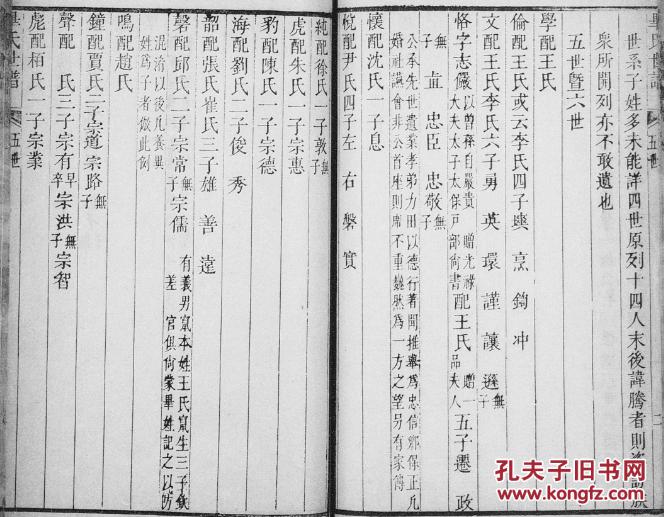 世系子姓多未能詳四世原列十四人末後諱騰者則
衆所開列亦不敢遺也
五世暨六世
學配王氏
倫配王氏或云李氏四子輿 烹 鈞 冲
文配王氏李氏六子勇 英 環 謹 讓 遜無子
恪字志嚴以曾孫自嚴貴 贈光祿大夫太子太保戶部尚書配王氏贈一品夫人五子遷 政
無子 直 忠臣 忠敬無子
公承先世遺業孝弟力田以德行著聞推舉爲忠信鄉保正凡
婚社讌會非公首座則席不重巍然爲一方之望另有家傳
懷配沈氏一子息
悅配尹氏四子左 右 磐 實
純配徐氏一子敦無子
虎配朱氏一子宗惠
豹配陳氏一子宗德
海配劉氏二子俊 秀
韶配張氏崔氏三子雄 善 達
磬配邱氏二子宗常無子宗儒有義男鼐本姓王氏鼐生三子
差官俱尚蒙畢姓記之以防
混淆以後凡養異
姓爲子者倣此例
鳴配趙氏
鐘配賈氏二子宗道 宗路無子
聲配 氏三子宗有早卒宗洪無子宗智
彪配栢氏一子宗業
畢氏世譜 五世
孔夫子旧书网
www.kongfz.com